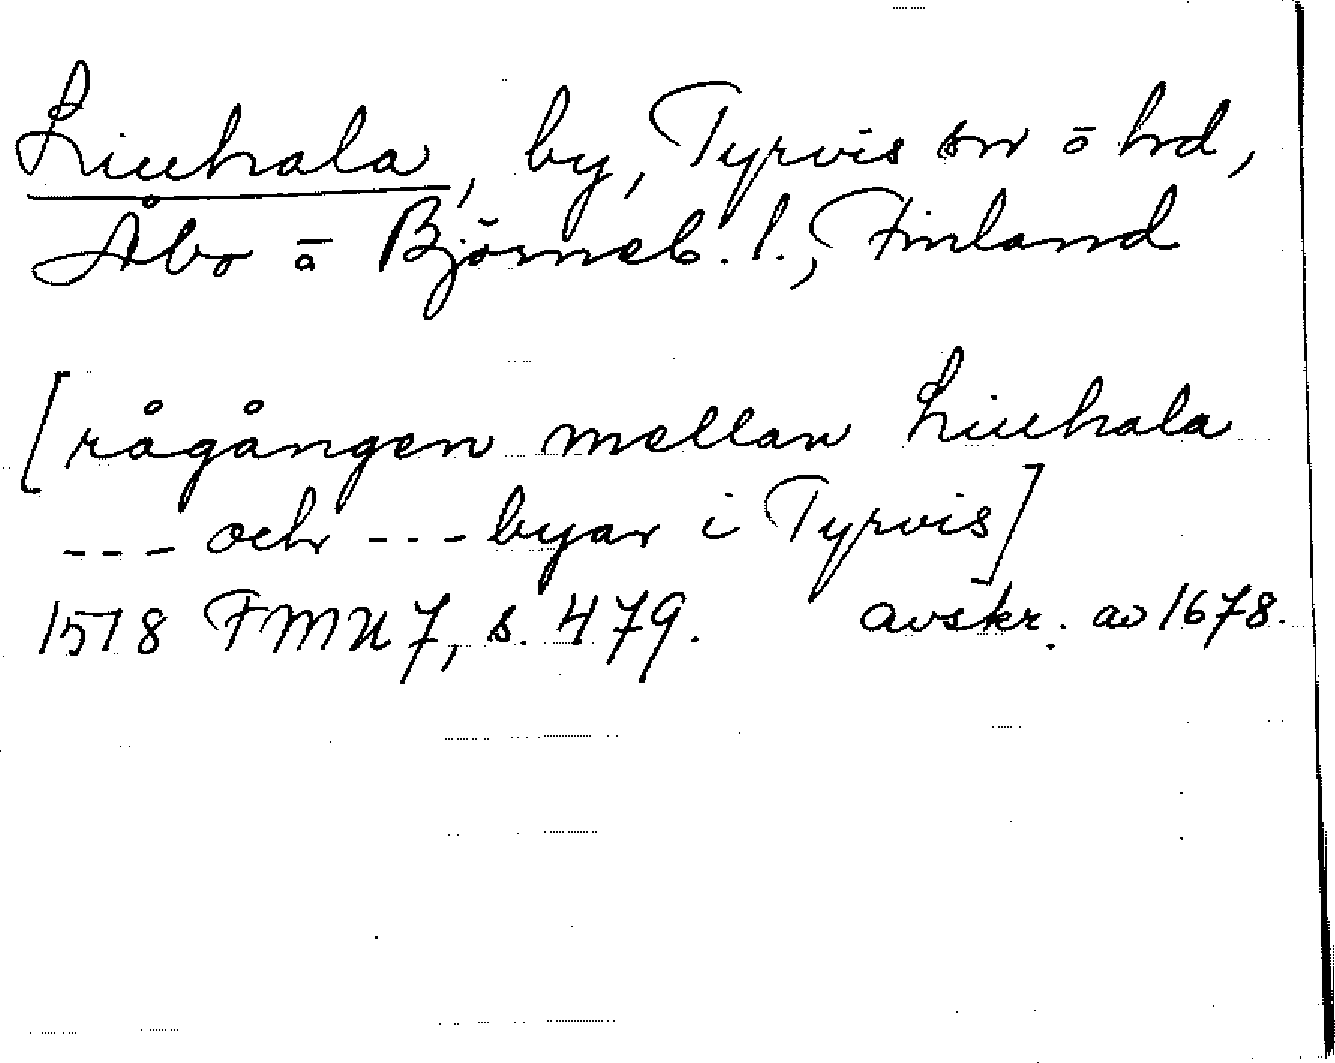 Liuhala, by, Tyrvis sn o hd,
Åbo o Björneb. l., Finland
[rågången mellan Liuhala
--- och --- byar i Tyrvis]
1518 FMU 7, s. 479. avskr. av 1678.